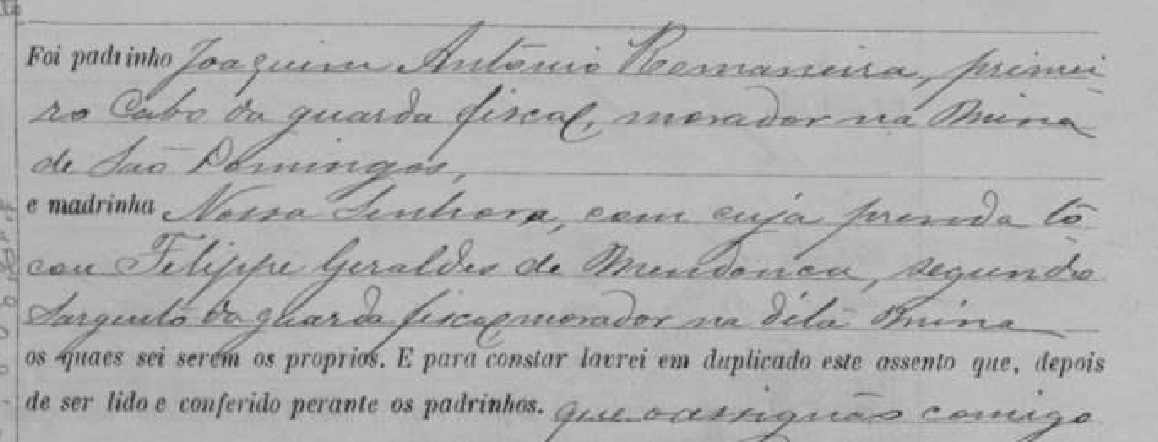 Foi padrinho Joaquim Antonio Romaneira, primei
ro Cabo da guarda fiscal, morador na Mina
de São Domingos,
e madrinha Nossa Senhora, com cuja prenda to
cou Felippe Geraldes de Mendonca, segundo
Sargento da guarda fiscal, morador na dita Mina
os quaes sei serem os proprios. E para constar lavrei em duplicado este assento que, depois
de ser lido e conferido perante os padrinhos. que o assignão comigo